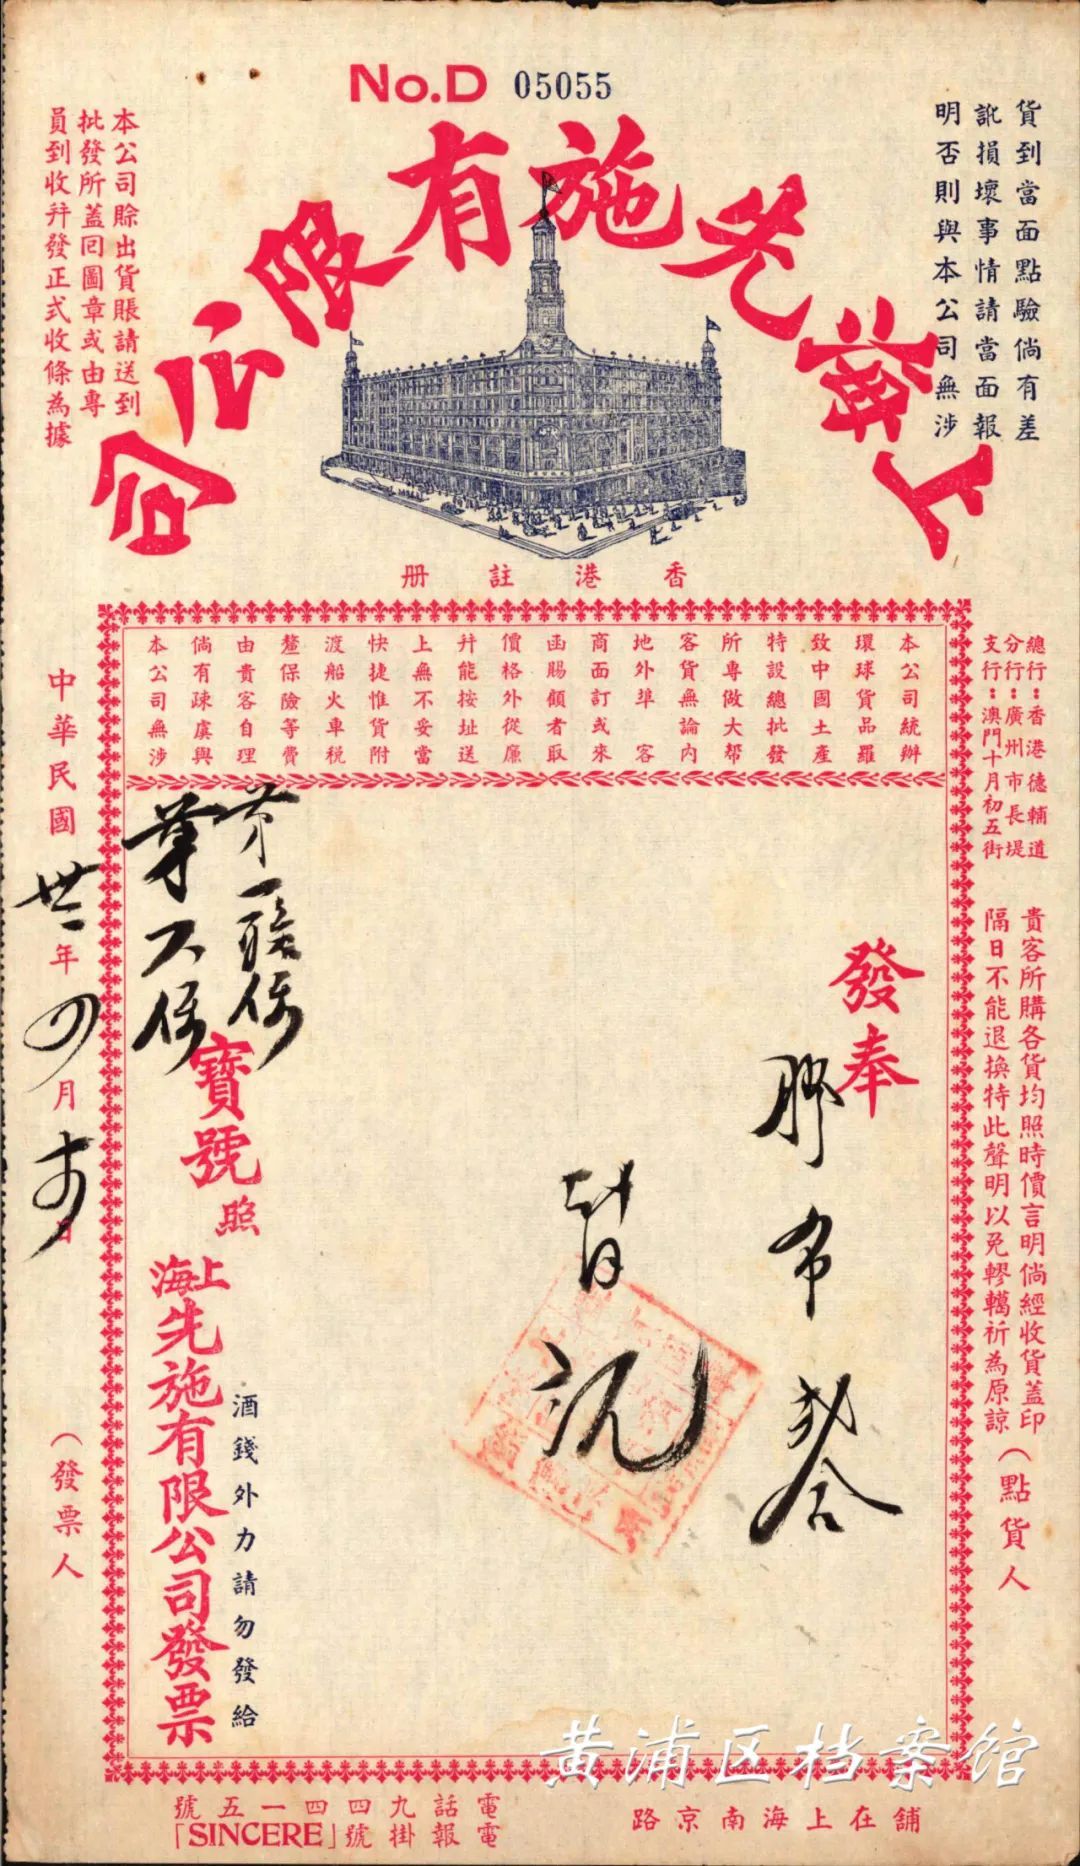 No.D 05055
上海先施有限公司
貨到當面點驗倘有差
訛損壞事情請當面報
明否則與本公司無涉
本公司賒出貨賬請送到
批發所蓋回圖章或由專
員到收幷發正式收條為據
香港註册
總行：香港德輔道
分行：廣州市長堤
支行：澳門十月初五街
貴客所購各貨均照時價言明倘經收貨蓋印
隔日不能退換特此聲明以免轇轕祈為原諒
（點貨人
本公司統辦
環球貨品羅
致中國土產
特設總批發
所專做大帮
客貨無論內
地外埠 客
商面訂或來
函賜顧者取
價格外從廉
幷能按址送
上無不妥當
快捷惟貨附
渡船火車税
釐保險等費
由貴客自理
倘有疎虞與
本公司無涉
發奉
膠布
第一聯保
第六保
寶號 照
酒錢外力請勿發給
上海先施有限公司發票
中華民國卅二年四月 日
（發票人
舖在上海南京路
電話九四四一五號
電報掛號「SINCERE」
黄浦区档案馆